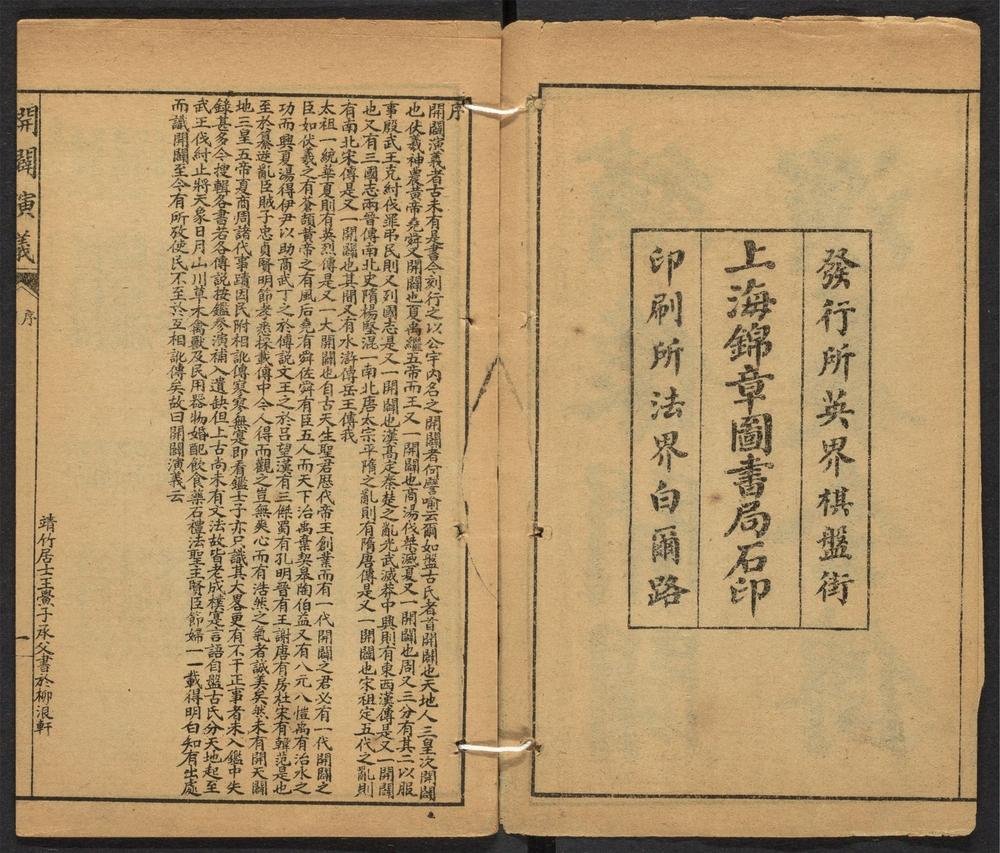 發行所英界棋盤街
上海錦章圖書局石印
印刷所法界白爾路
序
開闢演義者古未有是書今刻行之以公宇內名之開闢者何譬喻云爾如盤古氏者首開闢也天地人三皇次開闢
也伏羲神農黃帝堯舜又開闢也夏禹繼五帝而王又一開闢也商湯伐桀滅夏又一開闢也周又三分有其二以服
事殷武王克紂伐罪弔民則又列國志是又一開闢也漢高定秦楚之亂光武滅莽中興則有東西漢傳是又一開闢
也又有三國志兩晉傳南北史隋楊堅混一南北唐太宗平隋之亂則有隋唐傳是又一開闢也宋祖定五代之亂則
有南北宋傳是又一開闢也其間又有水滸傳岳王傳我
太祖一統華夏則有英烈傳是又一大開闢也自古天生聖君歷代帝王創業而有一代開闢之君必有一代開闢之
臣如伏羲之有蒼頡黃帝之有風后堯有舜佐舜有臣五人而天下治禹棄契皋陶伯益又有八元八愷禹有治水之
功而興夏湯得伊尹以助商武丁之於傅說文王之於呂望漢有三傑蜀有孔明晉有王謝唐有房杜宋有韓范是也
至於纂逆亂臣賊子忠貞賢明節孝悉採載傳中令人得而觀之豈無爽心而有浩然之氣者誠美矣然未有開天闢
地三皇五帝夏商周諸代事蹟因民附相訛傳寥寥無實即看鑑士子亦只識其大畧更有不干正事者未入鑑中失
錄甚多今搜輯各書若各傳說按鑑參演補入遺缺但上古尚未有文法故皆老成樸實言語自盤古氏分天地起至
武王伐紂止將天象日月山川草木禽獸及民用器物婚配飲食藥石禮法聖主賢臣節婦一一載得明白知有出處
而識開闢至今有所攷使民不至於互相訛傳矣故曰開闢演義云
靖竹居士王黌子承父書於柳浪軒
開闢演義
序
一